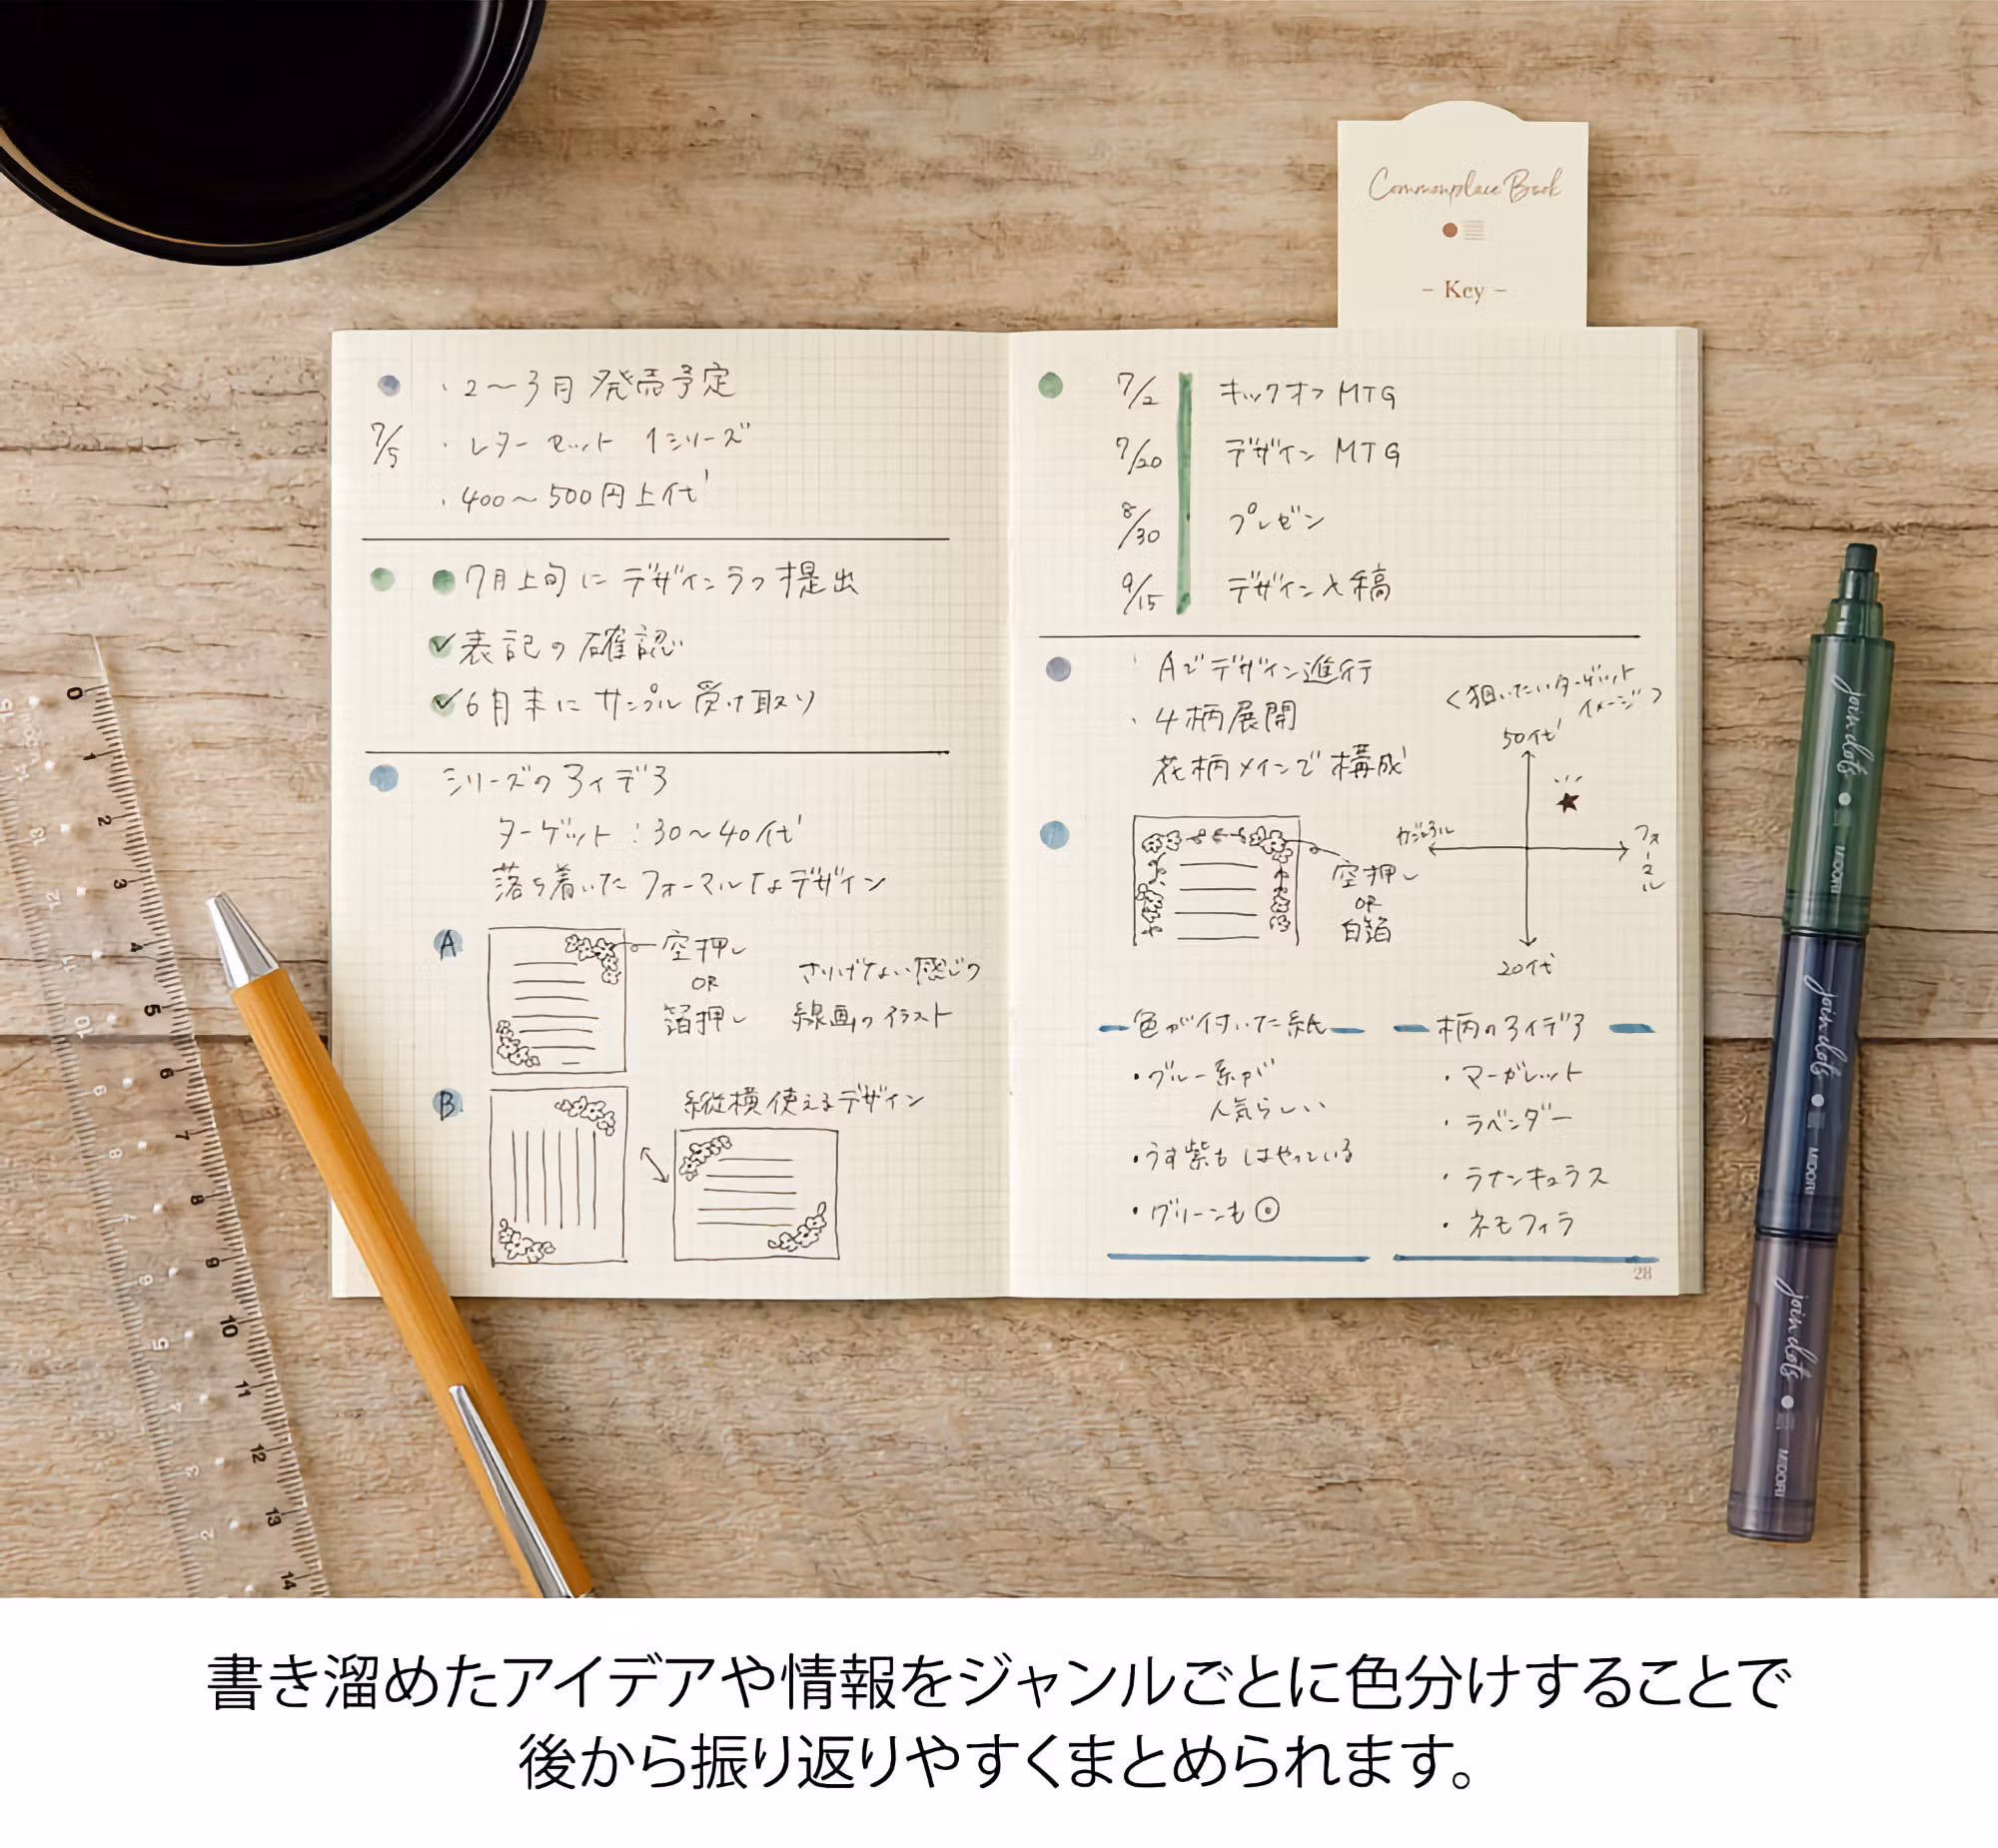 Commonplace Book
- Key -
・2〜3月発売予定
7/5
・レターセット 1シリーズ
・400〜500円上代
7月上旬にデザインラフ提出
✓表記の確認
✓6月末にサンプル受け取り
シリーズのアイデア
ターゲット：30〜40代
落ち着いたフォーマルなデザイン
A
空押し
OR
箔押し
さりげない感じの
線画のイラスト
B
縦横使えるデザイン
7/2 キックオフMTG
7/20 デザインMTG
8/30 プレゼン
9/15 デザイン入稿
・Aでデザイン進行
・4柄展開
花柄メインで構成
<狙いたいターゲット
イメージ>
50代
カジュアル
フォーマル
20代
空押し
OR
白箔
色が付いた紙
・ブルー系が
人気らしい
・うす紫もはやっている
・グリーンも◎
柄のアイデア
・マーガレット
・ラベンダー
・ラナンキュラス
・ネモフィラ
28
0
1
2
3
4
5
6
7
8
9
10
11
12
13
14
join dots
MIDORI
join dots
MIDORI
join dots
MIDORI
書き溜めたアイデアや情報をジャンルごとに色分けすることで
後から振り返りやすくまとめられます。